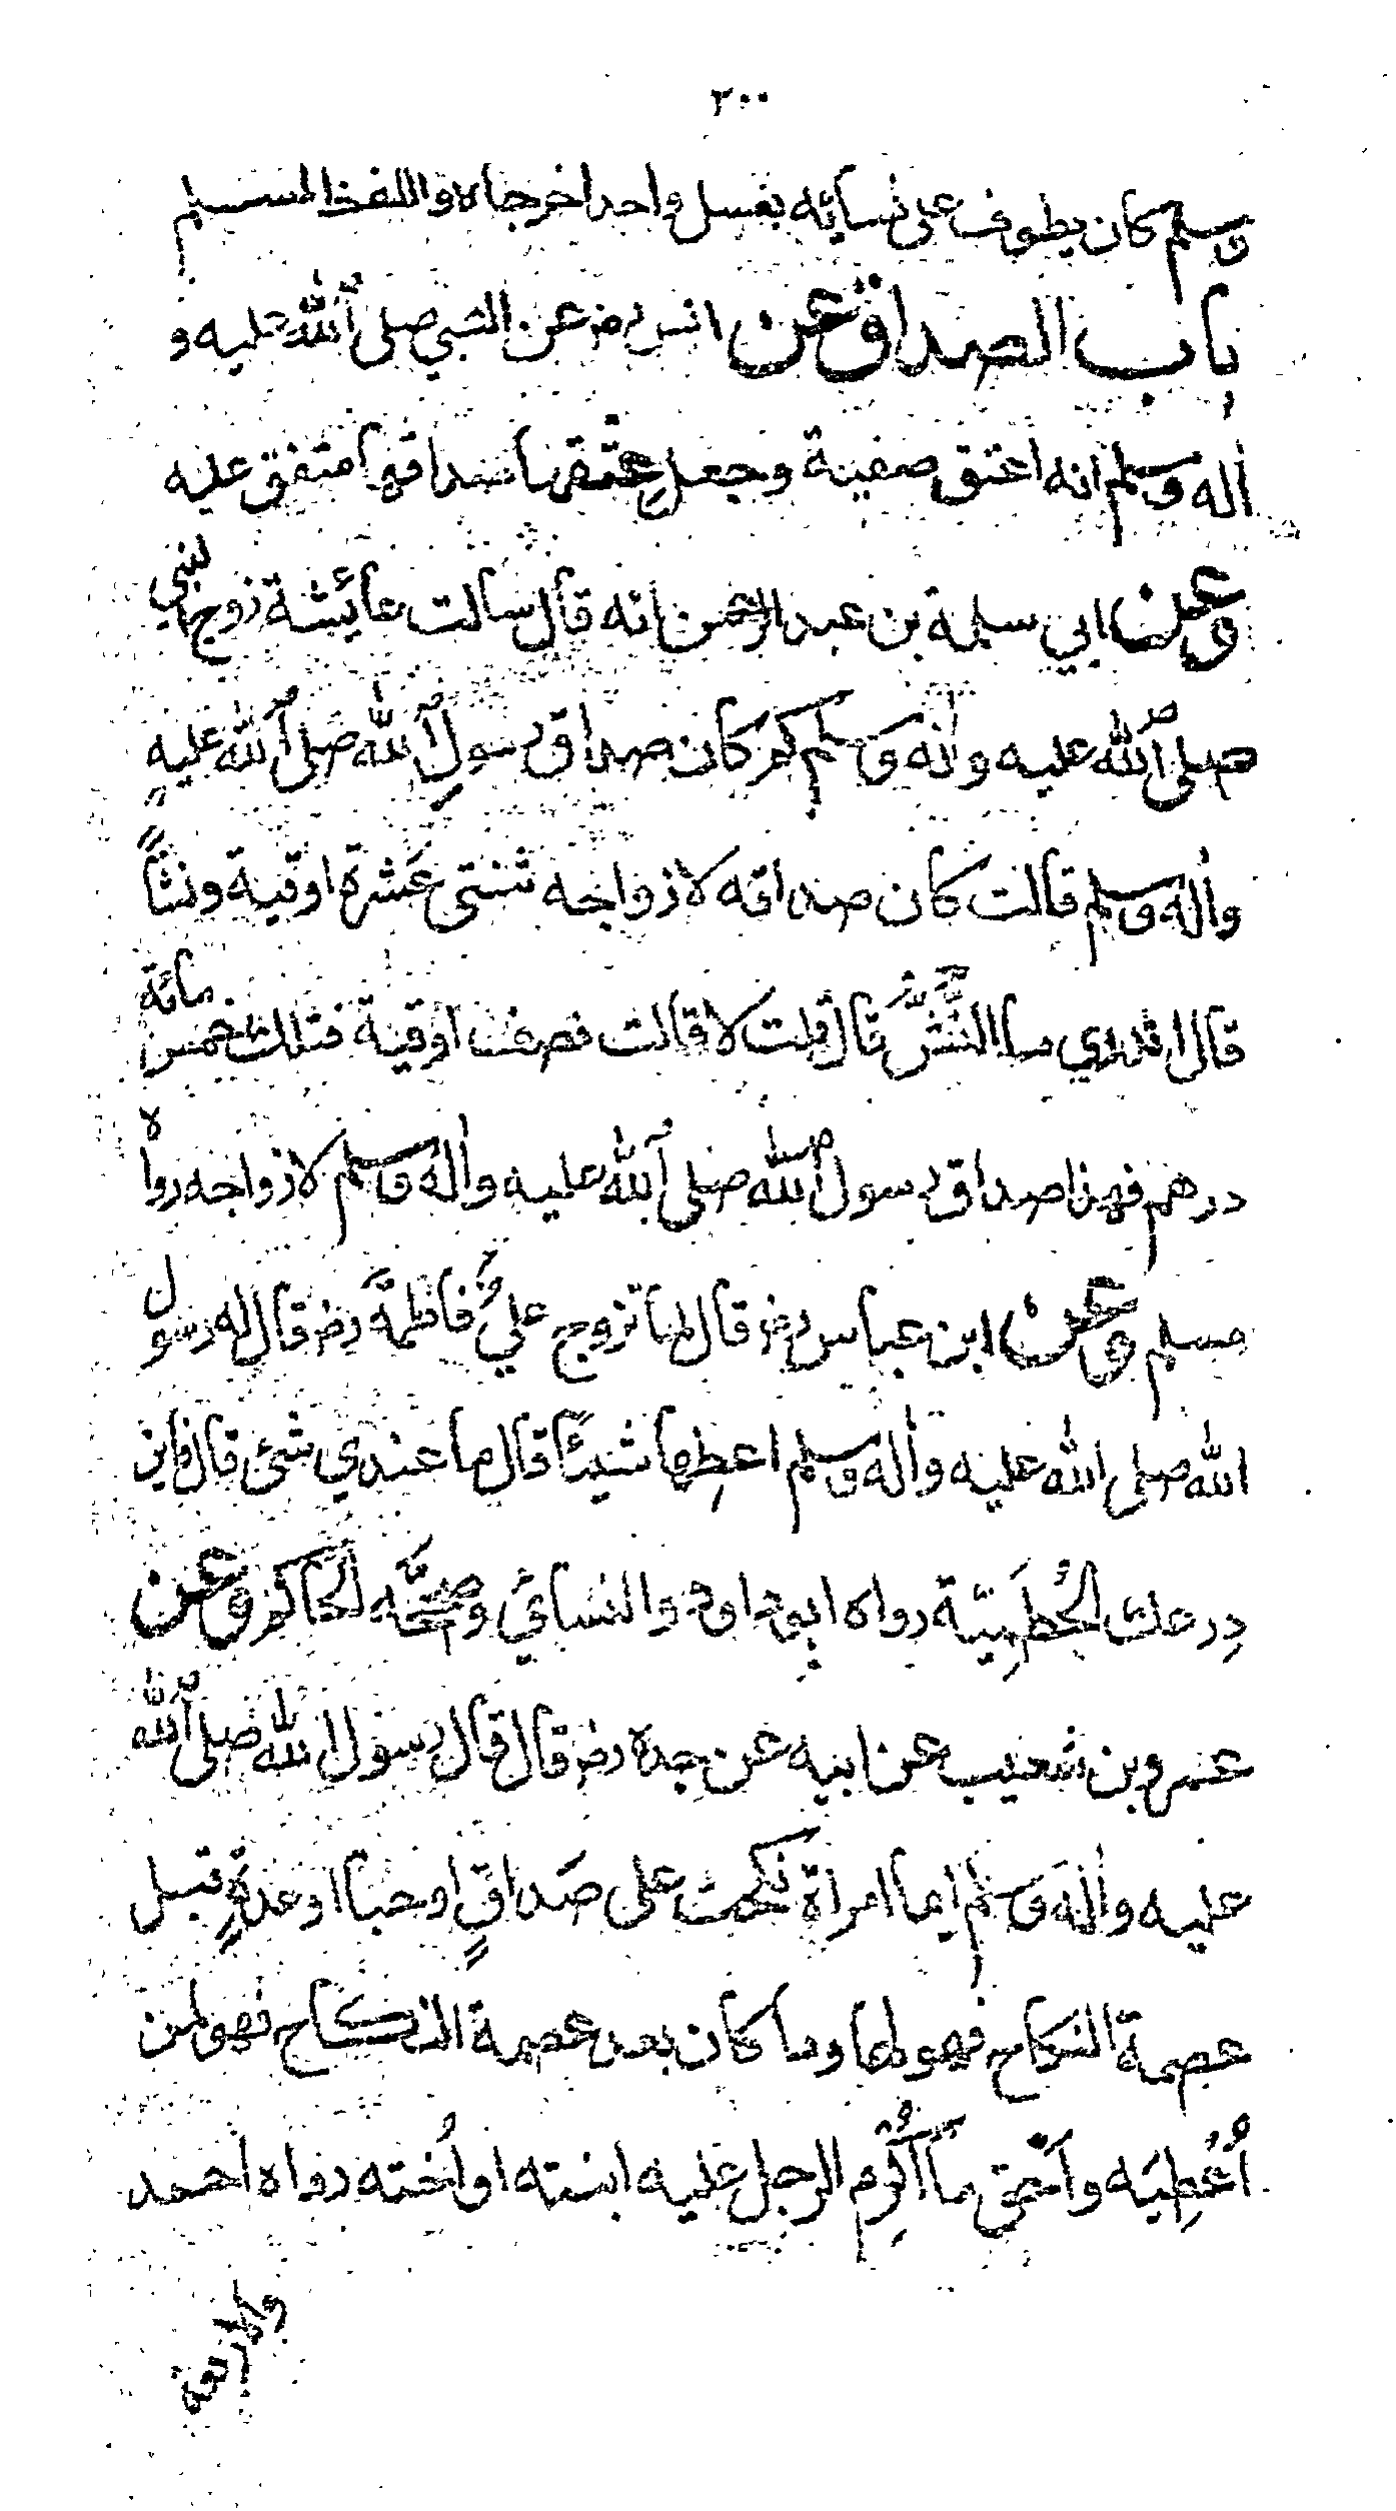 ٢٠٠
وسلم كان يطوف على نسائه بغسل واحد اخرجاه واللفظ لمسلم
باب الصداق عن انس رض عن النبي صلى الله عليه و
اله وسلم انه اعتق صفية وجعل عِتقها صداقها متفق عليه
وعن ابي سلمة بن عبد الرحمن انه قال سالت عائشة زوج النبي
صلى الله عليه واله وسلم كم كان صداق رسول الله صلى الله عليه
واله وسلم قالت كان صداقه لازواجه ثنتي عشرة اوقية ونشًّا
قال اتدري ما النَّشُّ قال قلت لا قالت نصف اوقية فتلك خمس مائة
درهم فهذا صداق رسول الله صلى الله عليه واله وسلم لازواجه رواه
مسلم وعن ابن عباس رض قال لما تزوج عليٌّ فاطمةَ رض قال له رسول
الله صلى الله عليه واله وسلم اعطِها شيئًا قال ما عندي شئ قال فاين
دِرعك الحُطَمِيّة رواه ابو داود والنسائي وصحَّحه الحاكم وعن
عمرو بن شعيب عن ابيه عن جده رض قال قال رسول الله صلى الله
عليه واله وسلم ايما امراة نكحت على صَداقٍ او حباءٍ او عدةٍ قبل
عصمة النكاح فهو لها وما كان بعد عصمة النكاح فهو لمن
اُعْطِيَه واَحقّ ما اُكْرِم الرجل عليه ابنته او اُخته رواه احمد